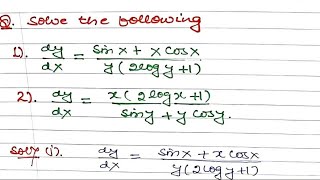 Q. Solve the following
1). dy/dx = sinx + x cosx / y(2logy+1)
2). dy/dx = x(2logx+1) / siny + y cosy.
Solⁿ(1). dy/dx = sinx + x cosx / y(2logy+1)